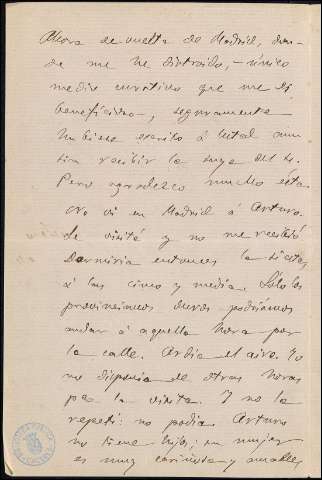 Ahora de vuelta de Madrid, don-
de me he distraido, – único
medio curativo que me es
beneficioso –, seguramente
hubiese escrito á usted aun
sin recibir la suya del 4.
Pero agradezco mucho ésta.
No vi en Madrid á Arturo.
Le visité y no me recibió
Dormiria entonces la siesta,
á las cinco y media. Sólo los
provincianos duros podríamos
andar á aquella hora por
la calle. Ardia el aire. Yo
no disponia de otras horas
para la visita. Y no la
repetí: no podia. Arturo
no tiene hijos; su mujer
es muy cariñosa y amable,